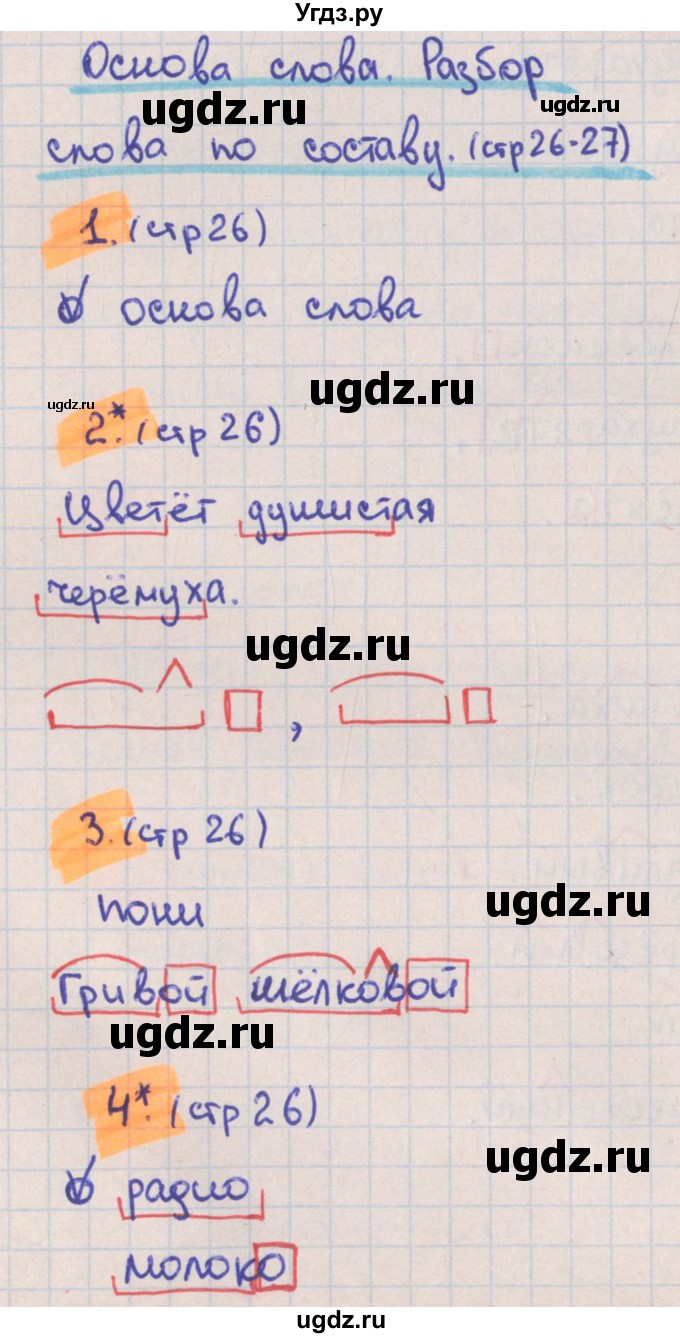 Угдз.ру
Основа слова. Разбор
ugdz.ru
ugdz.ru
слова по составу. (стр 26-27)
1. (стр 26)
основа слова
ugdz.ru
ugdz.ru
2.* (стр 26)
Цветёт душистая
черёмуха.
ugdz.ru
,
3. (стр 26)
пони
ugdz.ru
Гривой шёлковой
ugdz.ru
4.* (стр 26)
ugdz.ru
радио
молоко
ugdz.ru